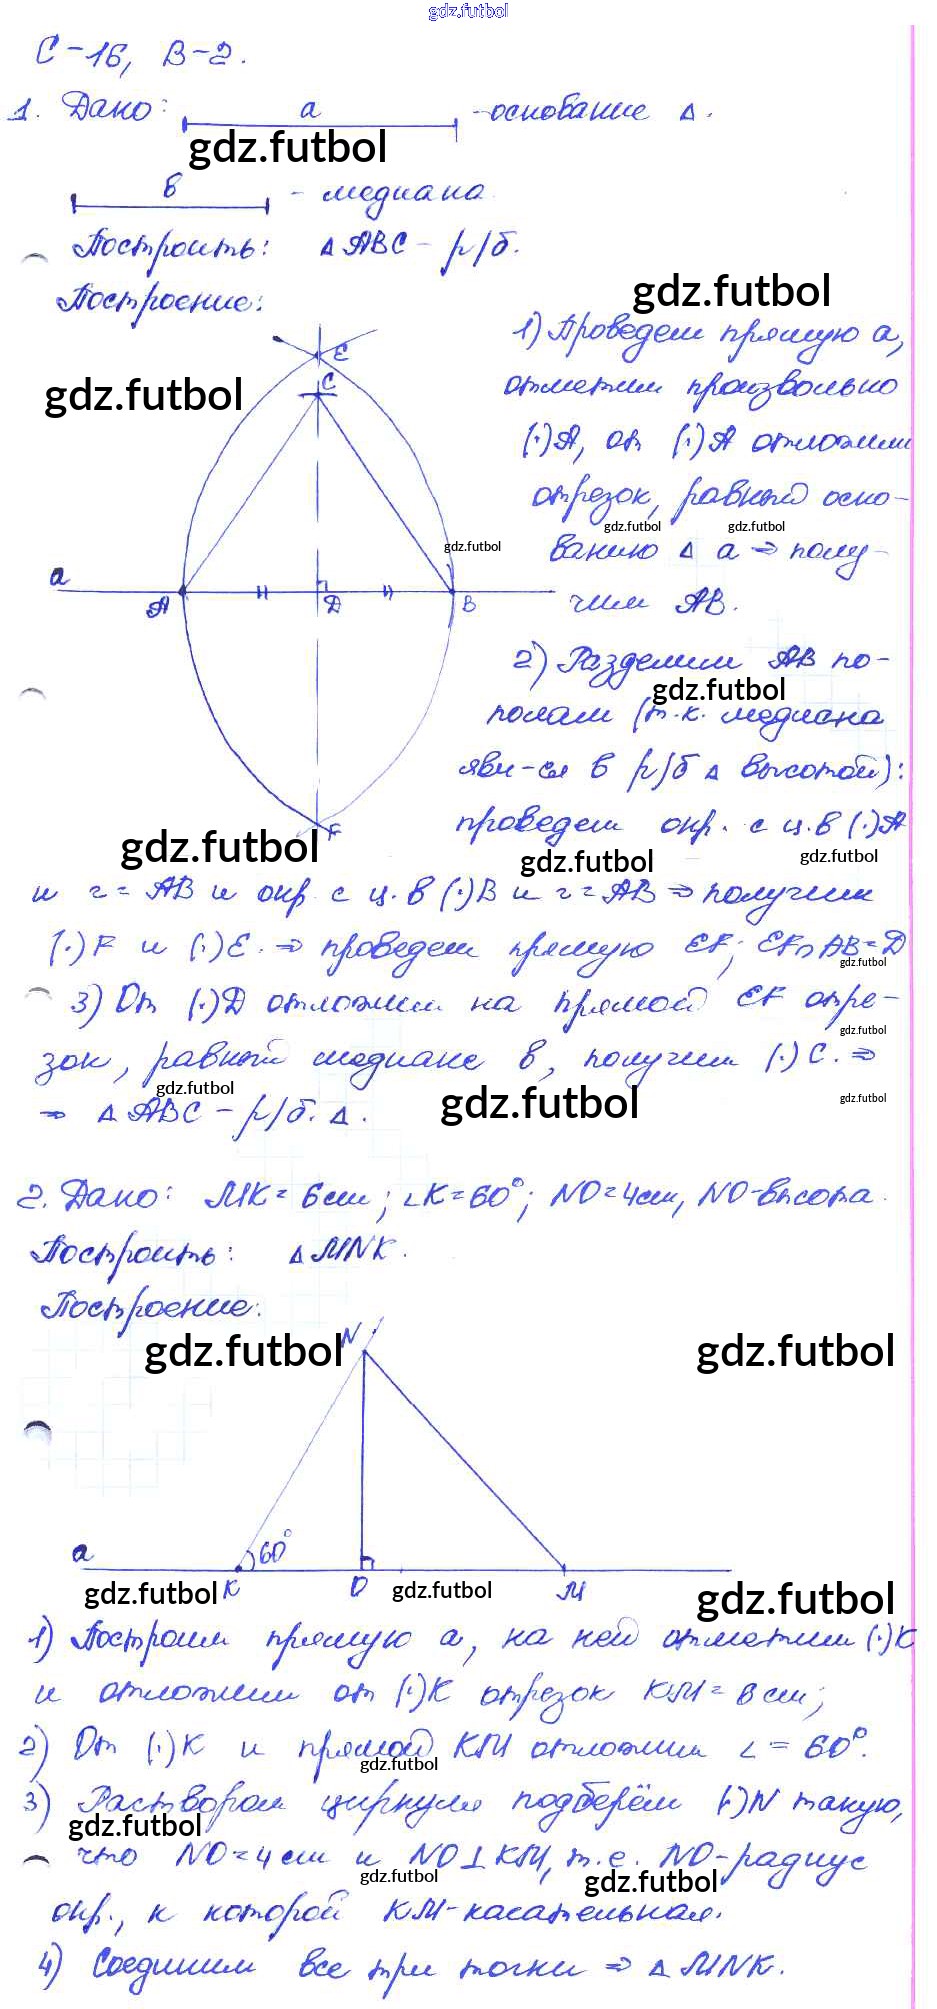 gdz.futbol
С-16, В-2.
1. Дано: a -основание Δ.
gdz.futbol
в - медиана
Построить: Δ ABC - р/б.
gdz.futbol
Построение:
1) Проведем прямую a,
E
C
gdz.futbol
отметим произвольно
(·)A, от (·)A отложим
отрезок, равный осно-
gdz.futbol gdz.futbol
gdz.futbol
ванию Δ a ⇒ полу-
a
A D B
чим AB.
2) Разделим AB по-
gdz.futbol
полам (т.к. медиана
явл-ся в р/б Δ высотой):
проведем окр. с ц. в (·)A
F
gdz.futbol gdz.futbol gdz.futbol
и r = AB и окр. с ц. в (·)B и r = AB ⇒ получим
(·)F и (·)E. ⇒ проведем прямую EF; EF∩AB=D
gdz.futbol
3) От (·)D отложим на прямой EF отре-
gdz.futbol
зок, равный медиане в, получим (·)C. ⇒
gdz.futbol gdz.futbol gdz.futbol
⇒ Δ ABC - р/б. Δ.
2. Дано: MK = 6см; ∠K = 60°; NO = 4см, NO-высота.
Построить: Δ MNK.
Построение:
N
gdz.futbol gdz.futbol
a 60°
K O M
gdz.futbol gdz.futbol gdz.futbol
1) Построим прямую a, на ней отметим (·)K
и отложим от (·)K отрезок KM = 6 см;
2) От (·)K и прямой KM отложим ∠ = 60°.
gdz.futbol
3) Раствором циркуля подберём (·)N такую,
gdz.futbol
что NO = 4 см и NO⊥KM, т.е. NO-радиус
gdz.futbol gdz.futbol
окр., к которой KM-касательная.
4) Соединим все три точки ⇒ Δ MNK.